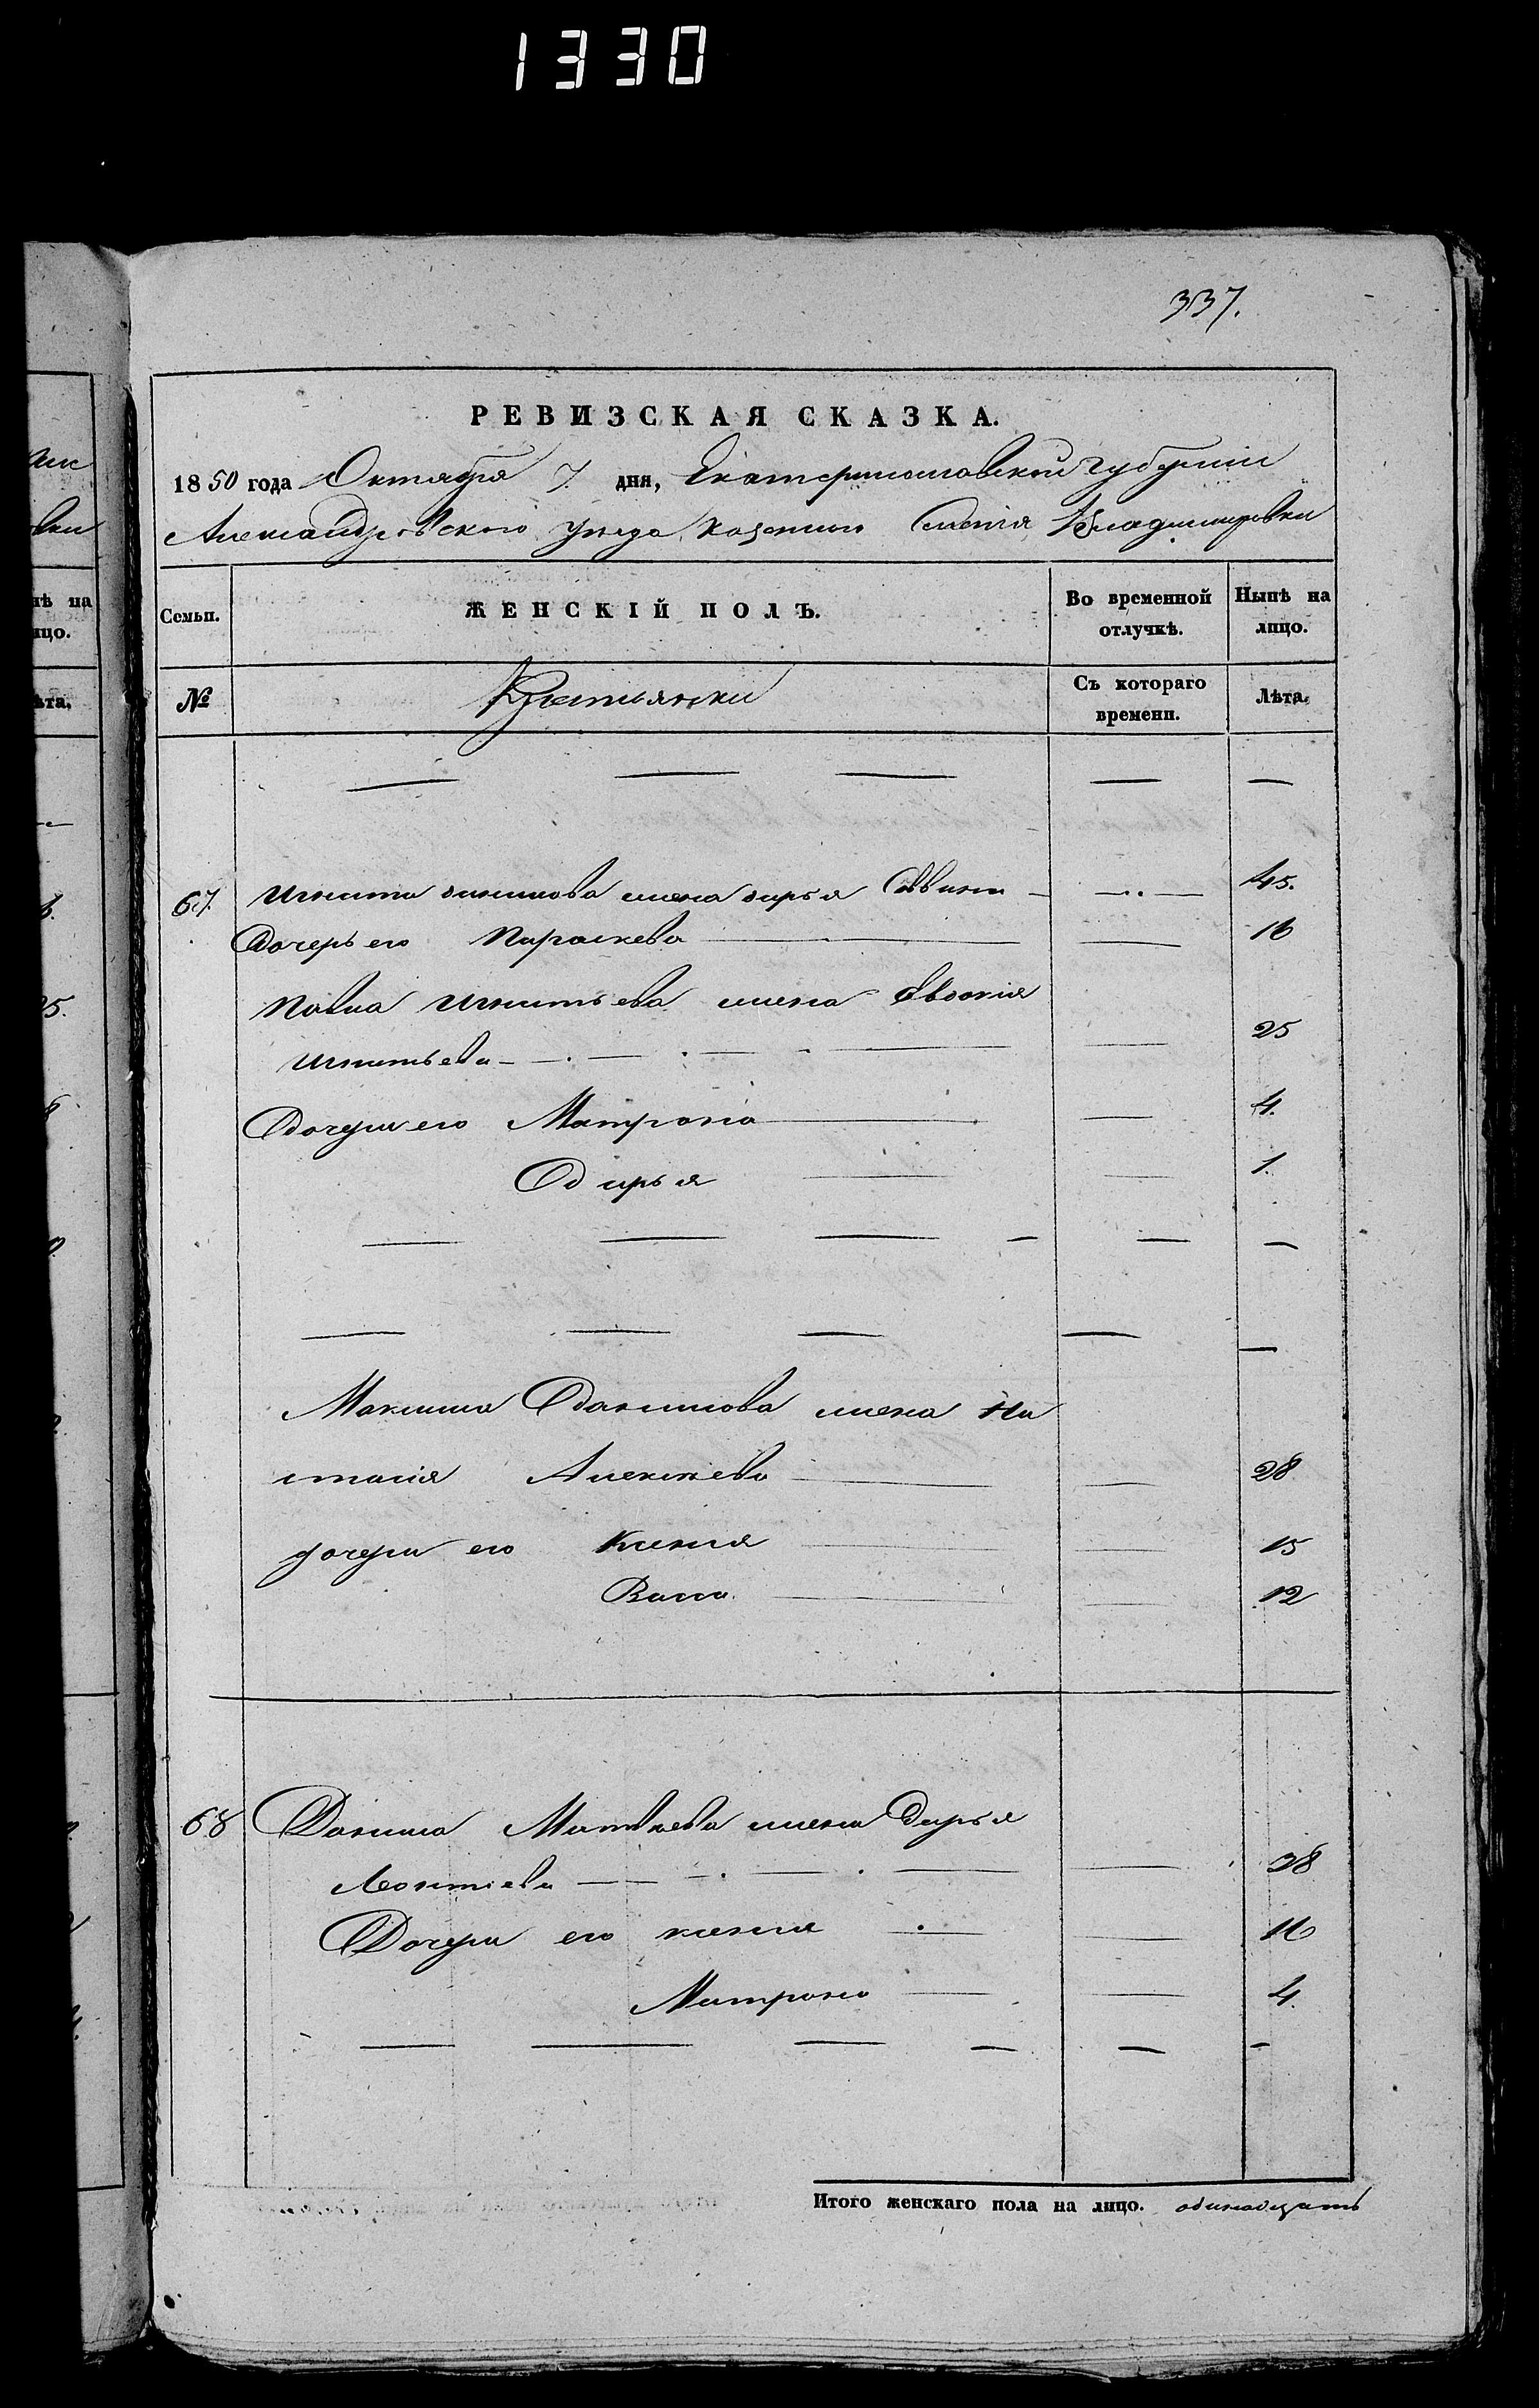 1330
337.
РЕВИЗСКАЯ СКАЗКА.
1850 года Октября 7. дня, Екатеринославской губернии
Александровского уезда казенного селенія Владимировки
Семьи. ЖЕНСКІЙ ПОЛЪ. Во временной отлучкѣ. Нынѣ на лицо.
№ Крестьянки Съ котораго времени. Лѣта.
67. Игната данилова жена дарья 45.
Дочерь его Параскева 16
Павла Игнатьева жена Евдокія
Игнатьева 25
Дочери его Матрона 4.
Дарья 1.
Максима Данилова жена На
стасія Алексеева 28.
дочери его Ксенія 15
Васса. 12
68 Данила Матвеева жена Дарья
Леонтіева 28
Дочери его ксенія 16
Матрона 4.
Итого женскаго пола на лицо. одинадцать